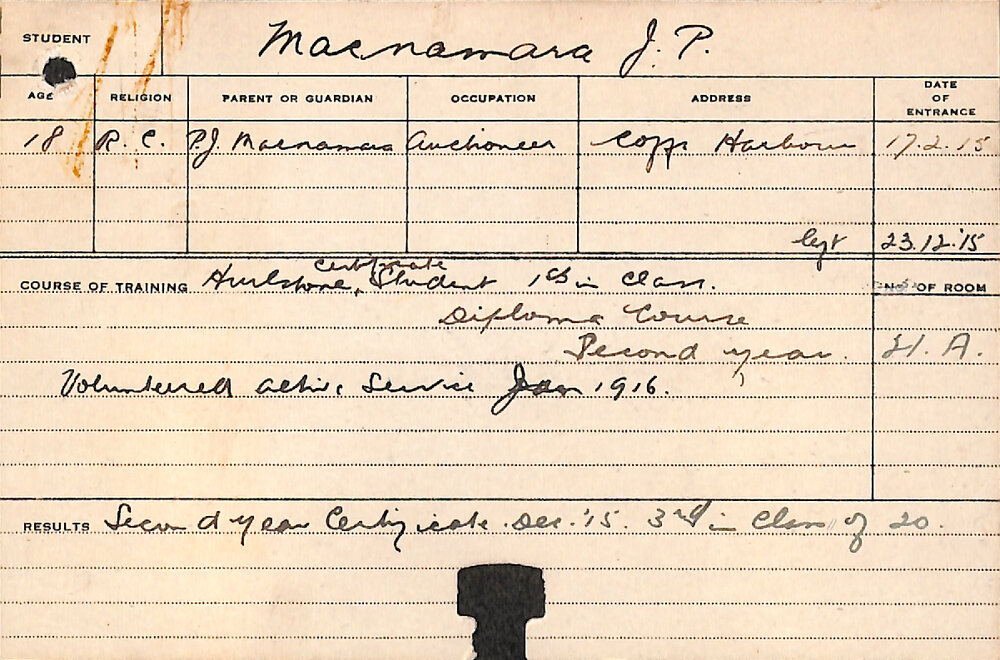 STUDENT Macnamara J. P.
AGE RELIGION PARENT OR GUARDIAN OCCUPATION ADDRESS DATE OF ENTRANCE
18 R. C. P.J. Macnamara Auctioneer Coffs Harbour 17.2.15
left 23.12.15
certificate
COURSE OF TRAINING Hurlstone, Student 1st in class. NO. OF ROOM
Diploma Course
Second year. H. A.
Volunteered active Service Jan 1916.
RESULTS Second year Certificate Dec. '15. 3rd in Class of 20.